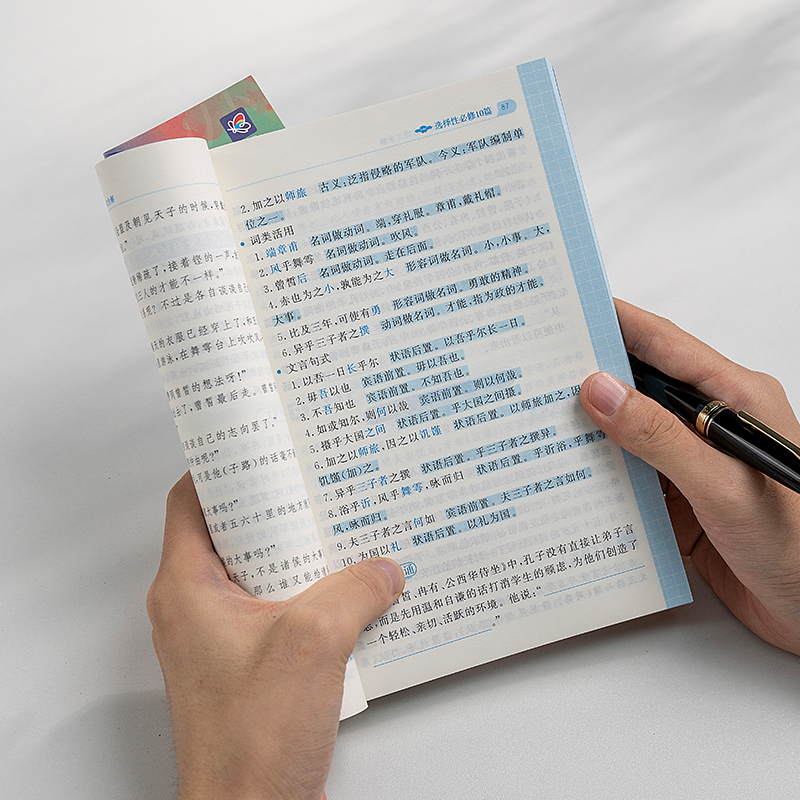 选择性必修10篇 87
2.加之以师旅 古义:泛指侵略的军队。今义:军队编制单
位之一。
• 词类活用
1.端章甫 名词做动词。端,穿礼服。章甫,戴礼帽。
2.风乎舞雩 名词做动词。吹风。
3.曾皙后 名词做动词。走在后面。
4.赤也为之小,孰能为之大 形容词做名词。小,小事。大,
大事。
5.比及三年,可使有勇 形容词做名词。勇敢的精神。
6.异乎三子者之撰 动词做名词。才能,指为政的才能。
• 文言句式
1.以吾一日长乎尔 状语后置。以吾乎尔长一日。
2.毋吾以也 宾语前置。毋以吾也。
3.不吾知也 宾语前置。不知吾也。
4.如或知尔,则何以哉 宾语前置。则以何哉。
5.摄乎大国之间 状语后置。乎大国之间摄。
6.加之以师旅,因之以饥馑 状语后置。以师旅加之,因
饥馑(加)之。
7.异乎三子者之撰 状语后置。乎三子者之撰异。
8.浴乎沂,风乎舞雩,咏而归 状语后置。乎沂浴,乎舞雩
风,咏而归。
9.夫三子者之言何如 宾语前置。夫三子者之言如何。
10.为国以礼 状语后置。以礼为国。
诵
皙、冉有、公西华侍坐》中,孔子没有直接让弟子言
志,而是先用温和自谦的话打消学生的顾虑,为他们创造了
一个轻松、亲切、活跃的环境。他说:“
。”
及朝见天子的时候,穿
稀疏了,接着铿的一声,
三人的才能不一样。”
呢?不过是各自谈谈自
天的衣服已经穿上了,和
游泳,在舞雩台上吹吹
曾皙的想法呀!”
去了,曾皙最后走。曾
谈谈自己的志向罢了。”
由呢?”
可是他(子路)的话毫不
大事吗?”
或者五六十里的地方
的大事吗?”
天子,不是诸侯的大事
那么谁又能给